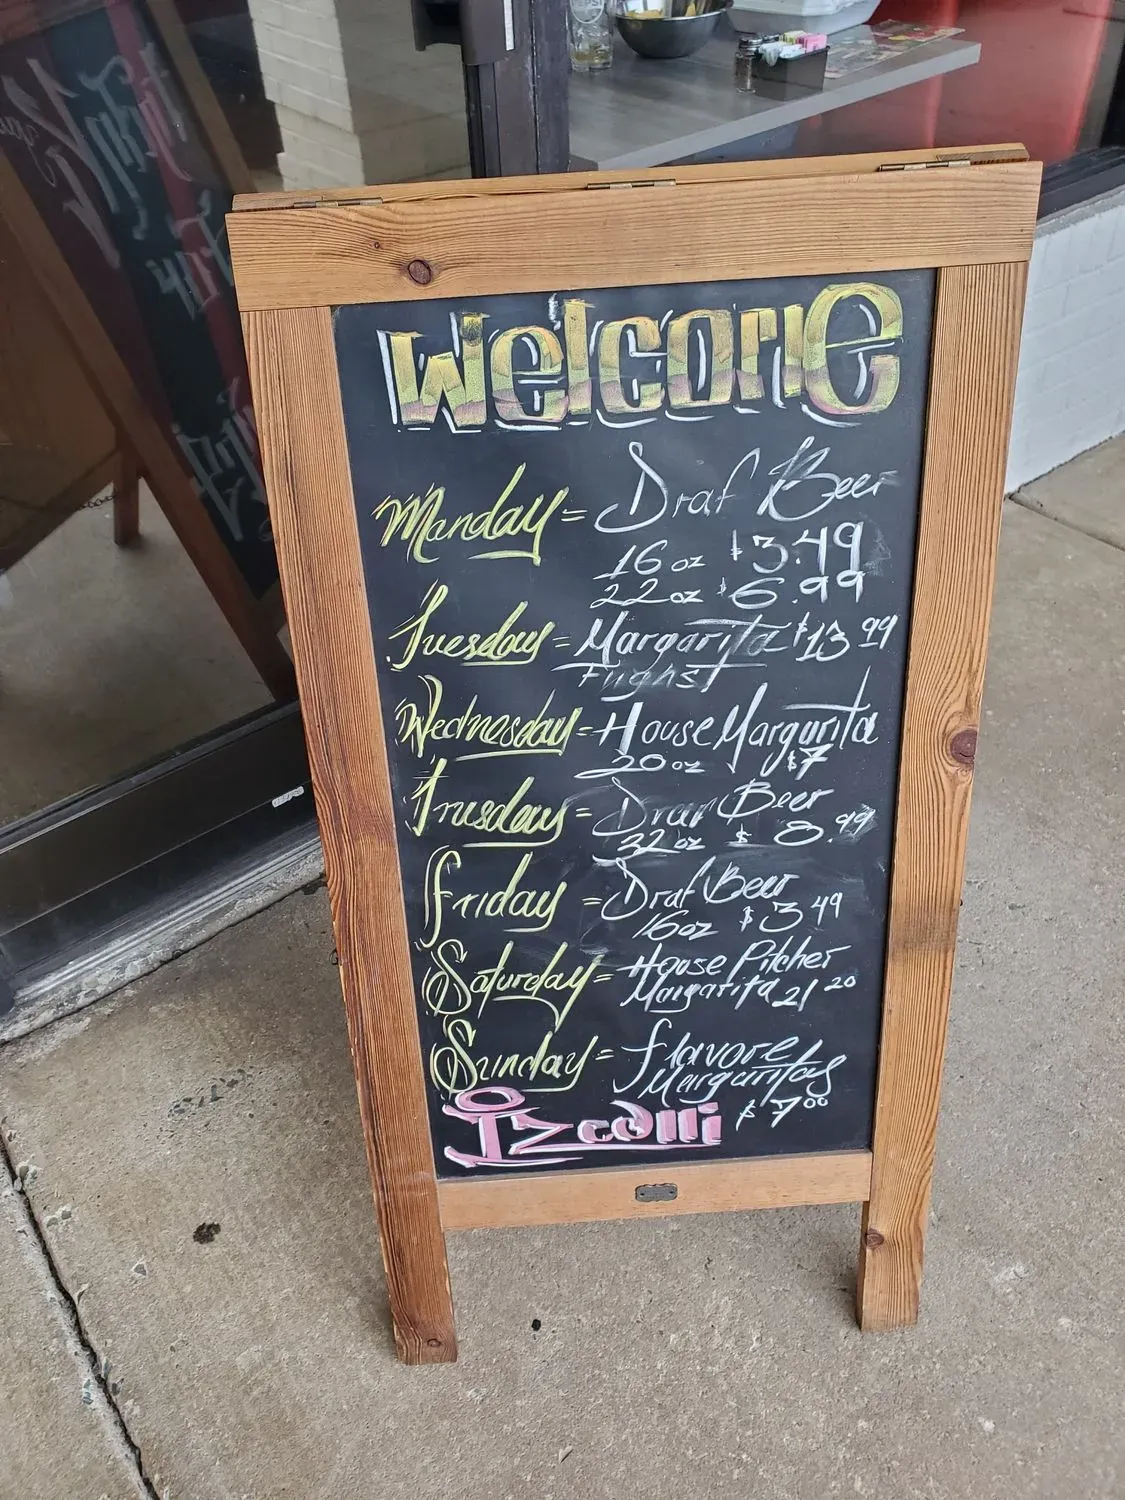 Welcome
Manday = Draf Beer
16 oz $3.49
22 oz $6.99
Tuesday = Margarita $13 99
Flighst
Wednesday = House Margarita
20 oz $7
Trusday = Draf Beer
32 oz $ 8.99
Friday = Draf Beer
16 oz $3 49
Saturday = House Pitcher
Margarita 21 20
Sunday = flavore
Margaritas
Izcalli $7 00